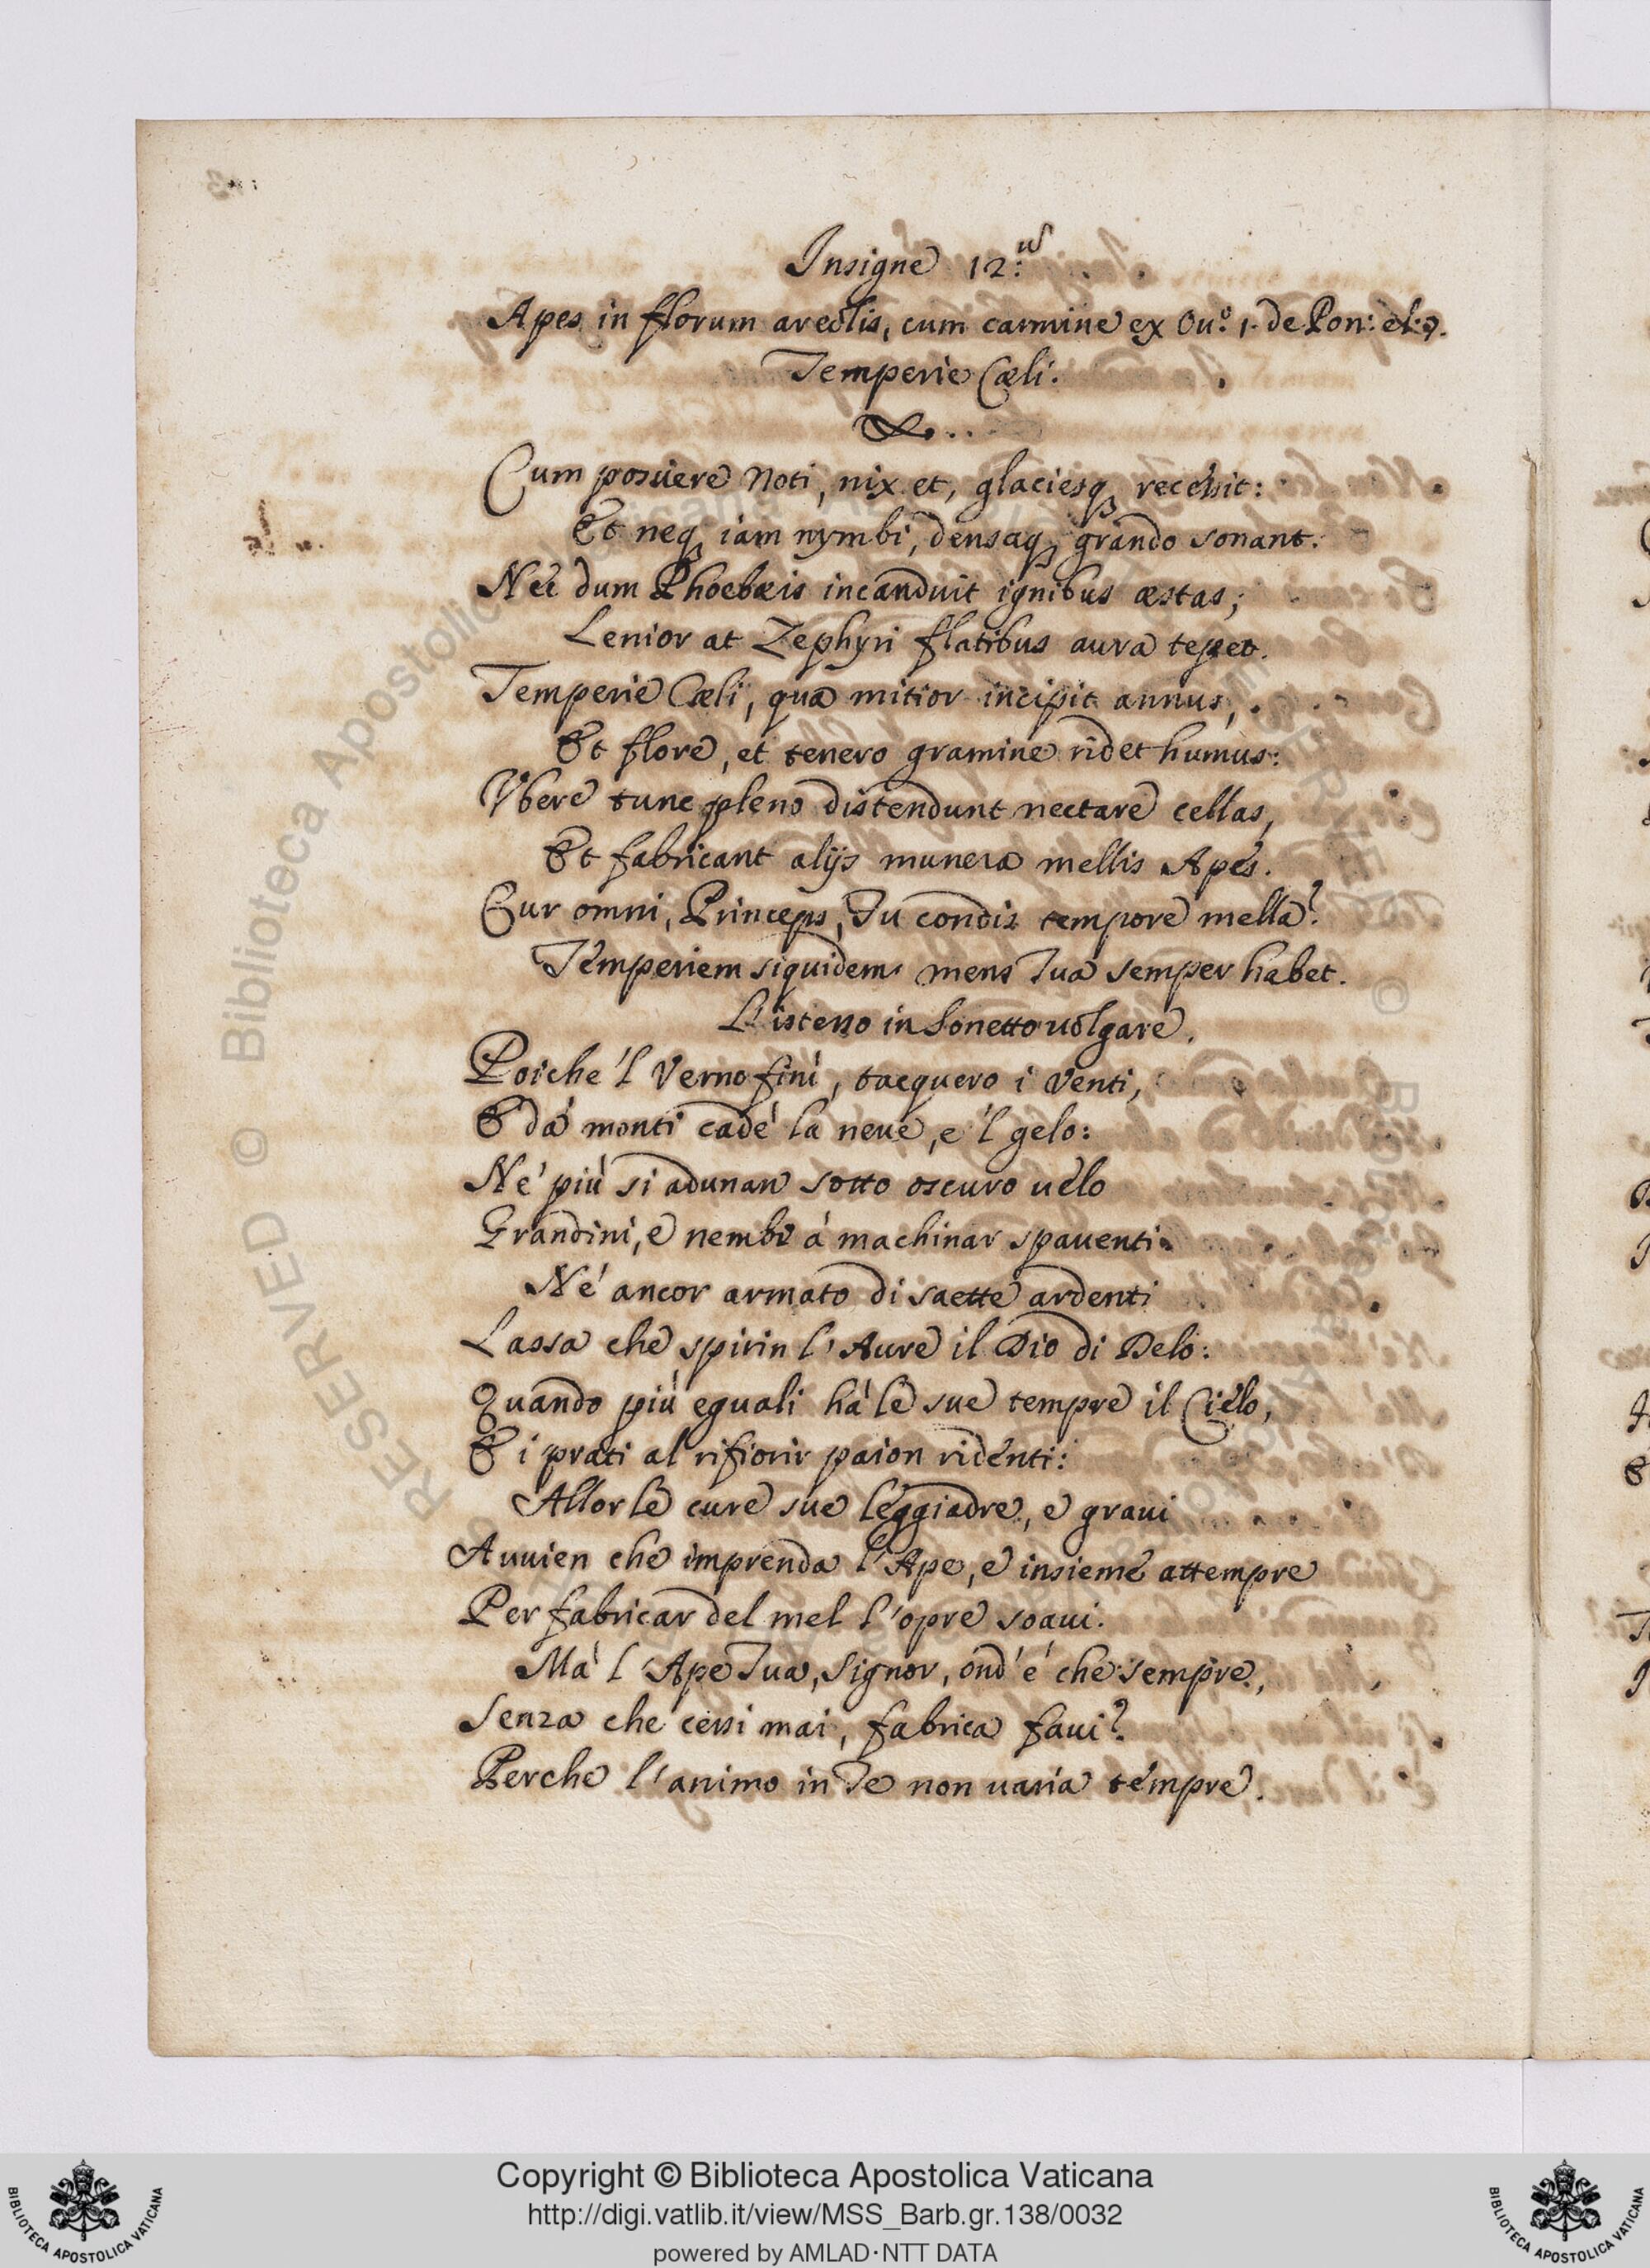 Insigne 12:us
Apes in florum areolis, cum carmine ex Ou:o 1. de Pon: el: 9.
Temperie Cæli.
Cum posuere Noti, nix et, glaciesq; recessit:
Et neq; iam nymbi, densaq; grando sonant.
Nec dum Phoebæis incanduit ignibus æstas;
Lenior at Zephyri flatibus aura tepet.
Temperie Cæli, qua mitior incipit annus,
Et flore, et tenero gramine ridet humus:
Vbere tunc pleno distendunt nectare cellas,
Et fabricant alijs munera mellis Apes.
Cur omni, Princeps, Tu condis tempore mella?
Temperiem siquidem mens Tua semper habet.
L'istesso in Sonetto uolgare.
Poiche 'l Verno finì, tacquero i Venti,
E dà monti cadè la neue, e 'l gelo:
Nè più si adunan sotto oscuro uelo
Grandini, e nembi à machinar spauenti.
Nè ancor armato di saette ardenti
Lassa che spirin l'Aure il Dio di Delo:
Quando più eguali hà le sue tempre il Cielo,
E i prati al rifiorir paion ridenti:
Allor le cure sue leggiadre, e graui
Auuien che imprenda l'Ape, e insieme attempre
Per fabricar del mel l'opre soaui.
Mà l'Ape Tua, Signor, ond'è che sempre,
Senza che cessi mai, fabrica faui?
Perche l'animo in Te non uaria tempre.
RESERVED © Biblioteca Apostolica Vaticana
Copyright © Biblioteca Apostolica Vaticana
http://digi.vatlib.it/view/MSS_Barb.gr.138/0032
powered by AMLAD·NTT DATA
BIBLIOTECA APOSTOLICA VATICANA
BIBLIOTECA APOSTOLICA VATICANA